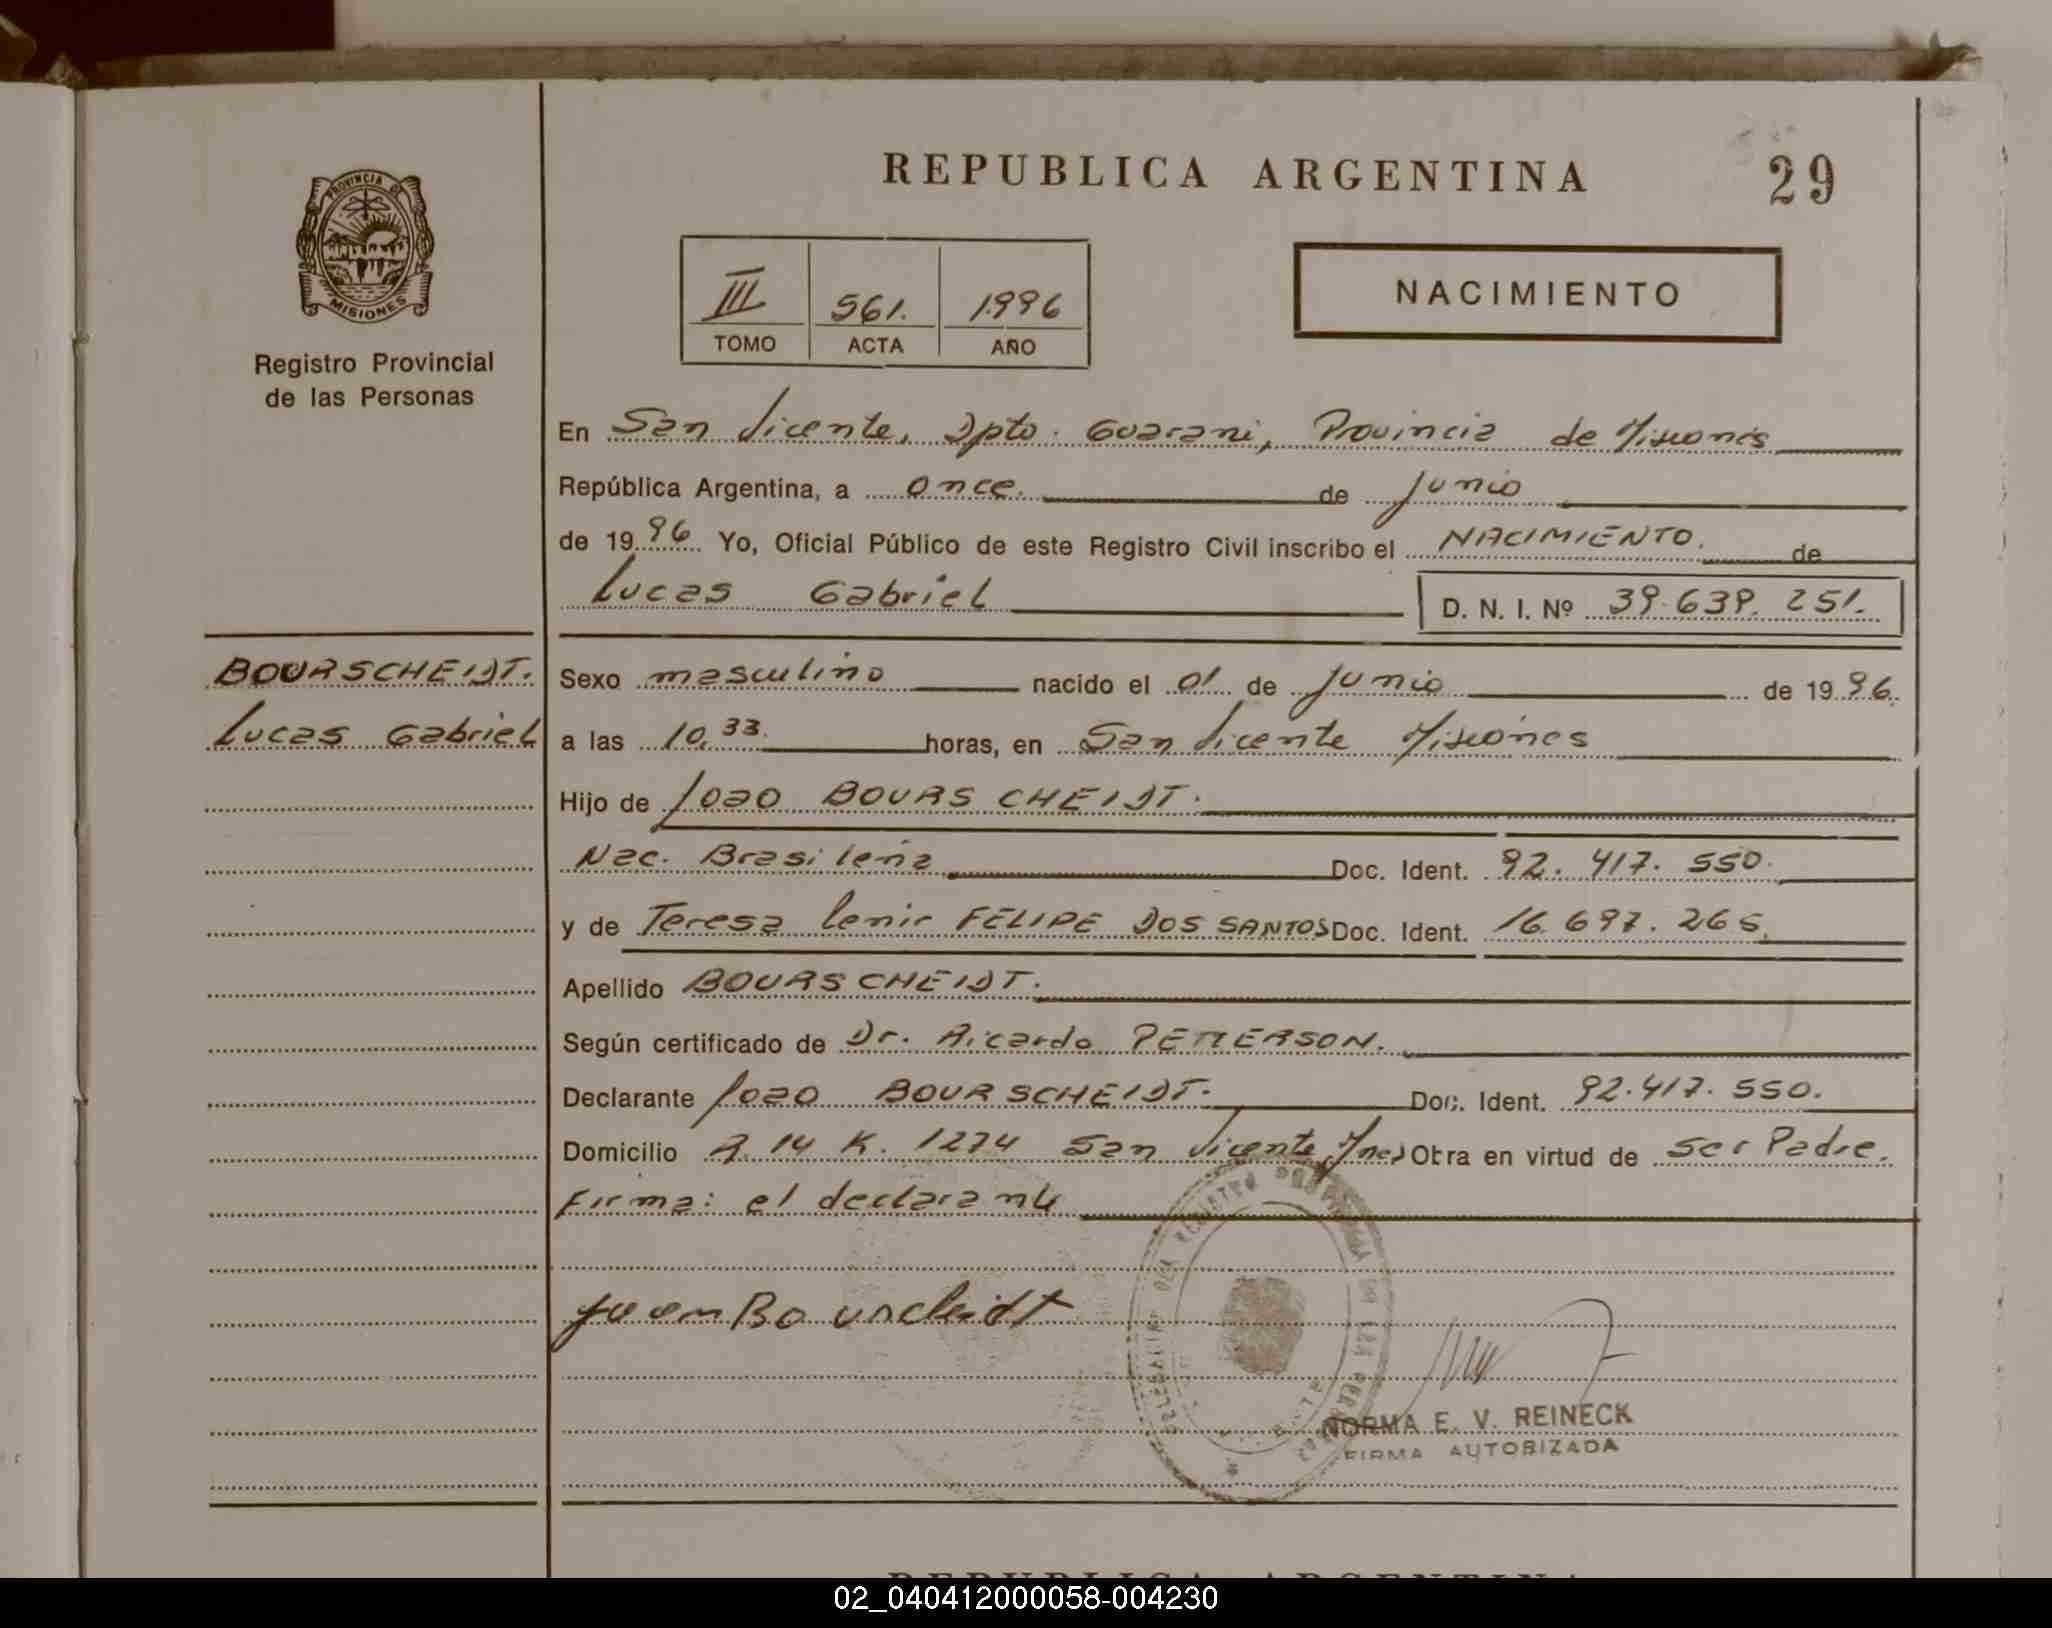 REPUBLICA ARGENTINA
29
PROVINCIA DE
MISIONES
Registro Provincial
de las Personas
III 561. 1996
TOMO ACTA AÑO
NACIMIENTO
En San Vicente, Dpto. Guarani, Provincia de Misiones
República Argentina, a once. de Junio
de 19 96 Yo, Oficial Público de este Registro Civil inscribo el NACIMIENTO. de
Lucas Gabriel D. N. I. Nº 39.639.251.
BOURSCHEIDT.
Lucas Gabriel
Sexo masculino nacido el 01 de Junio de 19 96.
a las 10,33. horas, en San Vicente Misiones
Hijo de Joao BOURSCHEIDT.
Nac. Brasileña Doc. Ident. 92.417.550.
y de Teresa Lenir FELIPE DOS SANTOS Doc. Ident. 16.697.265.
Apellido BOURSCHEIDT.
Según certificado de Dr. Ricardo PETTERSON.
Declarante Joao BOURSCHEIDT. Doc. Ident. 92.417.550.
Domicilio R. 14 K. 1274 San Vicente Mnes Obra en virtud de ser Padre.
Firma: el declarante
NORMA E. V. REINECK
FIRMA AUTORIZADA
REPUBLICA ARGENTINA
02_040412000058-004230